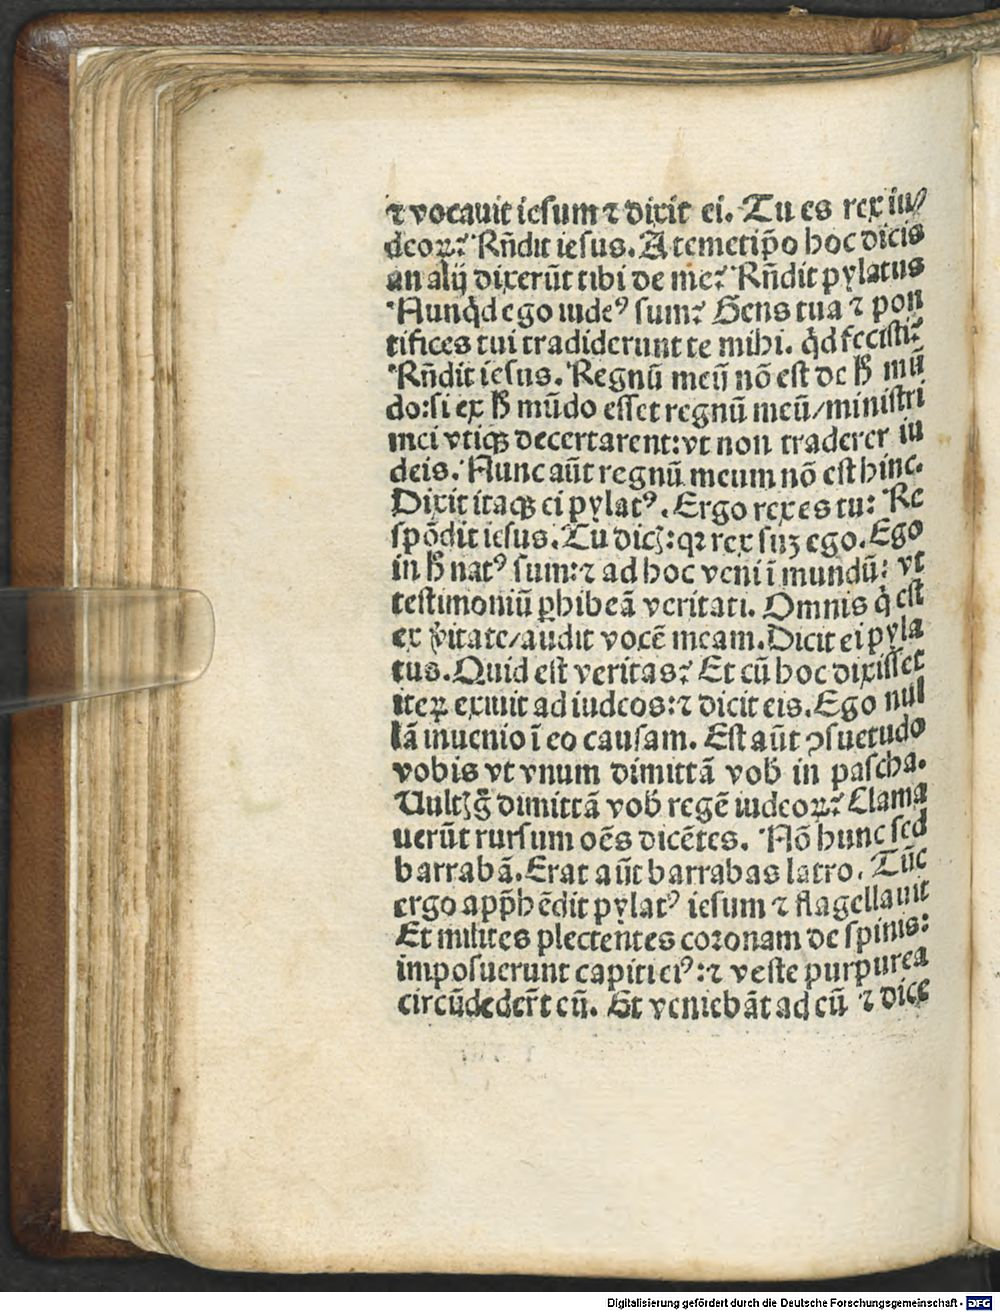 ⁊ vocauit iesum ⁊ dixit ei. Tu es rex iu/
deoꝝ? Rn̄dit iesus. A temetip̄o hoc dicis
an alij dixerūt tibi de me? Rn̄dit pylatus
Nunqͥd ego iudeꝰ sum? Gens tua ⁊ pon
tifices tui tradiderunt te mihi. qͥd fecisti?
Rn̄dit iesus. Regnū meū nō est de hͦ mū
do:si ex hͦ mūdo esset regnū meū/ministri
mei vtiqꝫ decertarent:vt non traderer iu
deis. Nunc aūt regnū meum nō est hinc.
Dixit itaqꝫ ei pylatꝰ. Ergo rex es tu? Re
spōdit iesus. Tu dicꝭ:qꝛ rex suꝫ ego. Ego
in hͦ natꝰ sum:⁊ ad hoc veni ī mundū: vt
testimoniū ꝑhibeā veritati. Omnis qͥ est
ex v̓itate/audit vocē meam. Dicit ei pyla
tus. Quid est veritas? Et cū hoc dixisset
iteꝝ exiuit ad iudeos:⁊ dicit eis. Ego nul
lā inuenio ī eo causam. Est aūt ꝯsuetudo
vobis vt vnum dimittā vob̄ in pascha.
Uultꝭ gͦ dimittā vob̄ regē iudeoꝝ? Clama
uerūt rursum oēs dicētes. Nō hunc sed
barrabā. Erat aūt barrabas latro. Tūc
ergo app̄hēdit pylatꝰ iesum ⁊ flagellauit
Et milites plectentes coronam de spinis:
imposuerunt capiti eiꝰ:⁊ veste purpurea
circūdeder̄t eū. Et veniebāt ad eū ⁊ dice
Digitalisierung gefördert durch die Deutsche Forschungsgemeinschaft - DFG